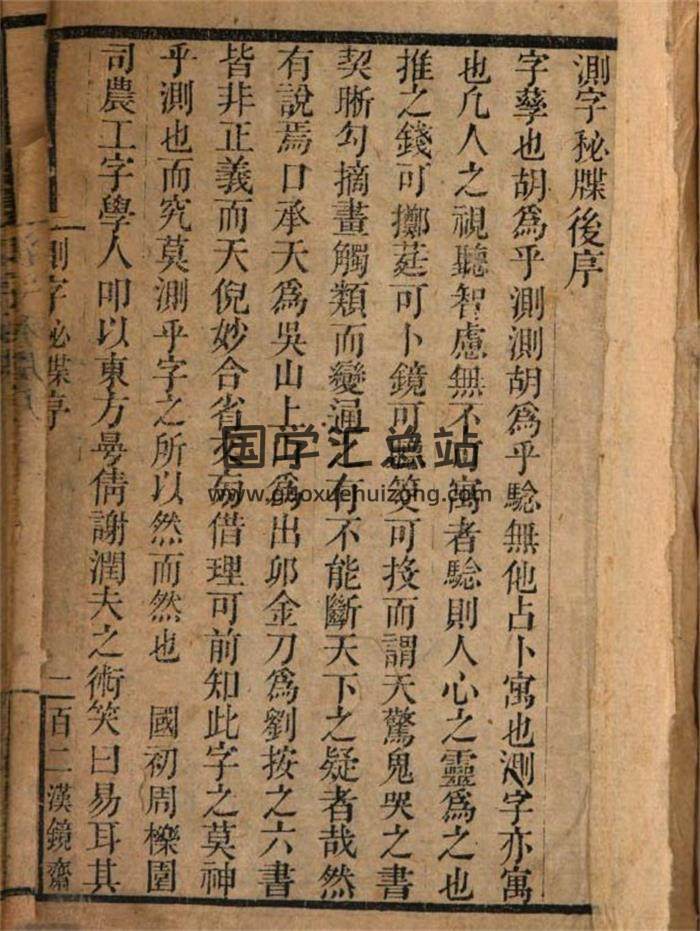 測字秘牒後序
字孳也胡爲乎測測胡爲乎驗無他占卜寓也測字亦寓
也凡人之視聽智慮無不可寓者驗則人心之靈爲之也
推之錢可擲莛可卜鏡可聽筊可投而謂天驚鬼哭之書
契晰勾摘畫觸類而變通之有不能斷天下之疑者哉然
有說焉口承天爲吳山上山爲出卯金刀爲劉按之六書
皆非正義而天倪妙合省文叚借理可前知此字之莫神
乎測也而究莫測乎字之所以然而然也 國初周櫟園
司農工字學人叩以東方曼倩謝潤夫之術笑曰易耳其
測字秘牒序
二百二漢鏡齋
国学汇总站
www.guoxuehuizong.com